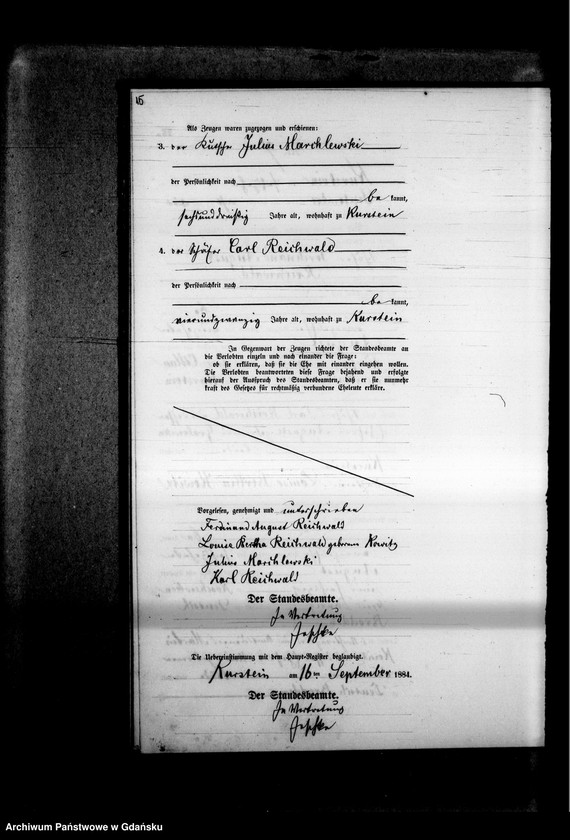 15
Als Zeugen waren zugezogen und erschienen:
3. der Kutscher Julius Marchlewski
der Persönlichkeit nach
be kannt,
sechsunddreißig Jahre alt, wohnhaft zu Kurstein
4. der Schäfer Carl Reichwald
der Persönlichkeit nach
be kannt,
vierundzwanzig Jahre alt, wohnhaft zu Kurstein
In Gegenwart der Zeugen richtete der Standesbeamte an
die Verlobten einzeln und nach einander die Frage:
ob sie erklären, daß sie die Ehe mit einander eingehen wollen.
Die Verlobten beantworteten diese Frage bejahend und erfolgte
hierauf der Ausspruch des Standesbeamten, daß er sie nunmehr
kraft des Gesetzes für rechtmäßig verbundene Eheleute erkläre.
Vorgelesen, genehmigt und unterschrieben
Ferdinand August Reichwald
Louise Bertha Reichwald geborene Nowitz
Julius Marchlewski
Karl Reichwald
Der Standesbeamte.
In Vertretung
Jeschke
Die Uebereinstimmung mit dem Haupt-Register beglaubigt.
Kurstein am 16ten September 1884.
Der Standesbeamte.
In Vertretung
Jeschke
Archiwum Państwowe w Gdańsku